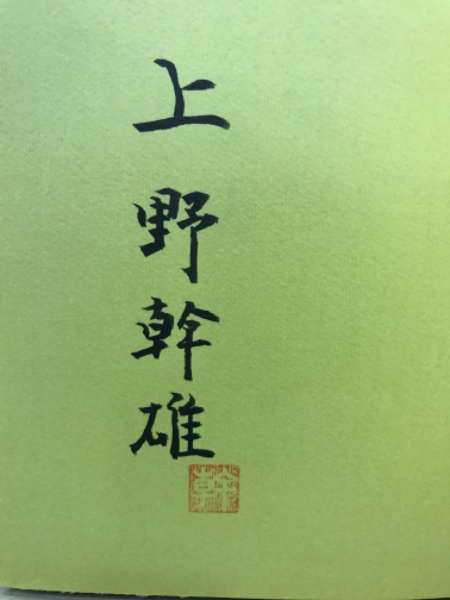 上野幹雄
幹